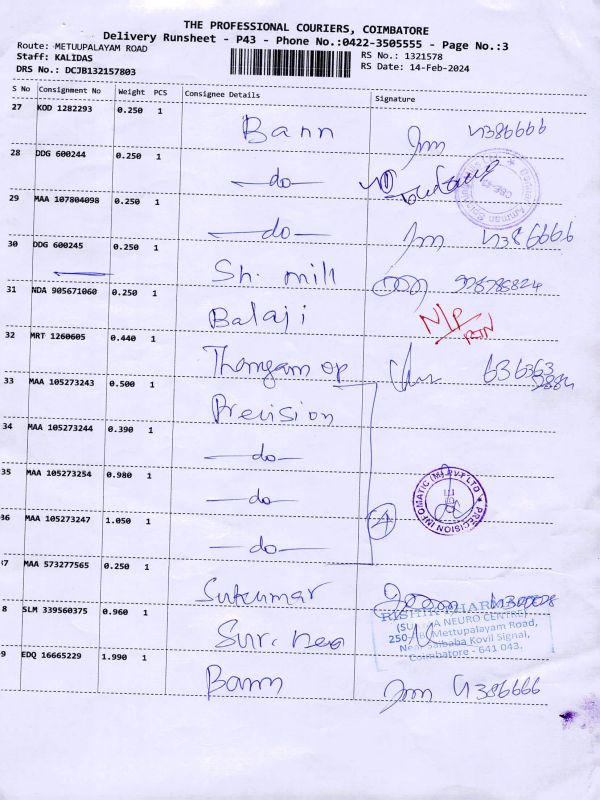 THE PROFESSIONAL COURIERS, COIMBATORE
Delivery Runsheet - P43 - Phone No.:0422-3505555 - Page No.:3
Route: METUUPALAYAM ROAD
Staff: KALIDAS
DRS No.: DCJB132157803
RS No.: 1321578
RS Date: 14-Feb-2024
S No Consignment No Weight PCS Consignee Details Signature
27 KOD 1282293 0.250 1
Bann 4386666
28 DDG 600244 0.250 1
do
29 MAA 107804098 0.250 1
do 4386666
30 DDG 600245 0.250 1
Sh. mill
31 NDA 905671060 0.250 1
Balaji N/P RTN
32 MRT 1260605 0.440 1
Thangam op
33 MAA 105273243 0.500 1
Precision
34 MAA 105273244 0.390 1
do
35 MAA 105273254 0.980 1
do
PRECISION INFOMATIC (M) PVT LTD
36 MAA 105273247 1.050 1
do
37 MAA 573277565 0.250 1
Sukumar
8 SLM 339560375 0.960 1
Sur. neo
(NEURO CENTRE)
Mettupalayam Road,
Near Saibaba Kovil Signal,
Coimbatore - 641 043.
9 EDQ 16665229 1.990 1
Bann 4386666